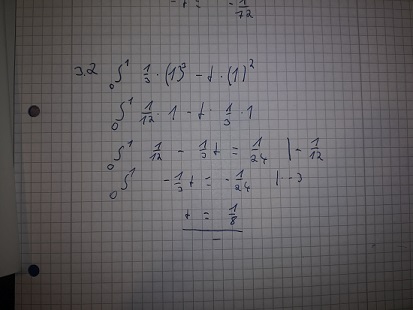 - t = - 1/72
3.2 ₀∫¹ 1/3 · (1)³ - t · (1)²
₀∫¹ 1/12 · 1 - t · 1/3 · 1
₀∫¹ 1/12 - 1/3 t = 1/24 | - 1/12
₀∫¹ - 1/3 t = - 1/24 | · -3
t = 1/8